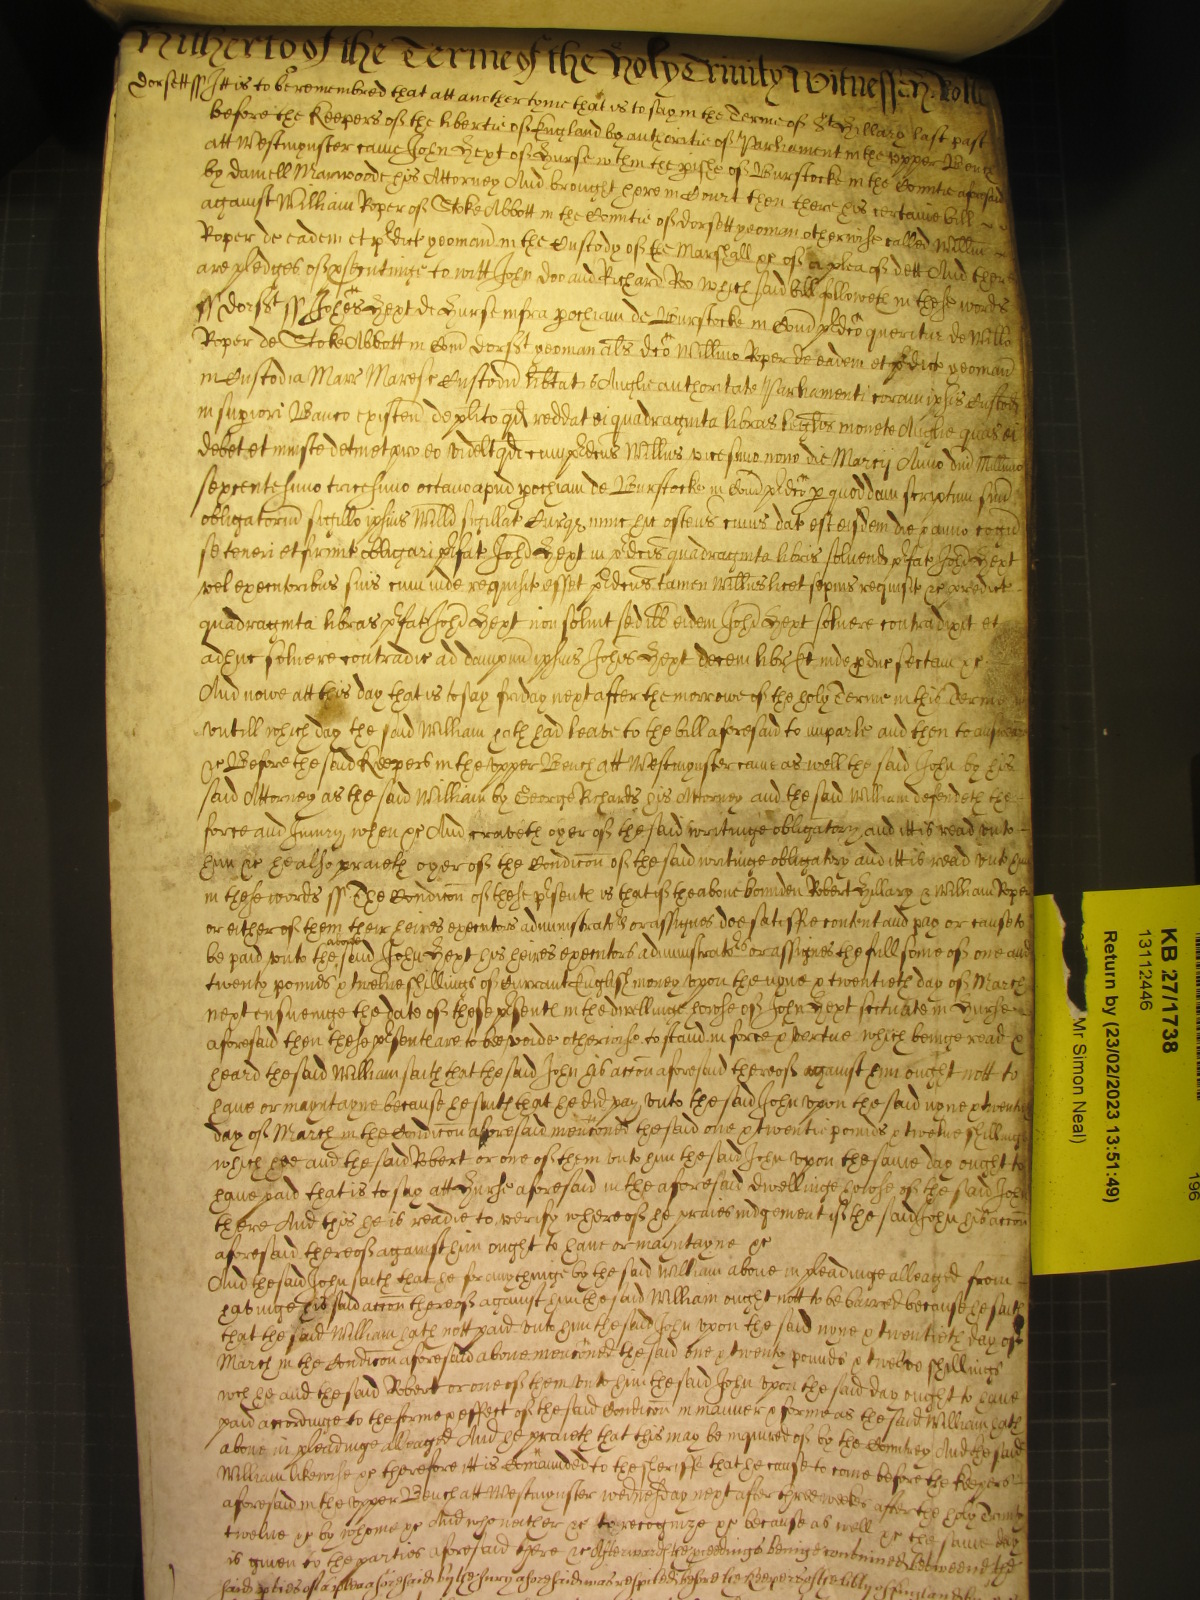 Hitherto of the Terme of the Holy Trinity Witness H. Rolle
Dorsett ss Itt is to be remembred that att another tyme that is to say in the Terme of St Hillary last past
before the Keepers of the libertie of England by authoritie of Parliament in the upper Bench
att Westmynster came John Hext of Hurse within the pishe of Burstocke in the Countie aforesaid
by Daniell Marwoode his Attorney And brought here in Court then there his certaine bill
against William Roper of Stoke Abbott in the Countie of Dorsett yeoman otherwise called Willm
Roper de eadem et pdict yeoman in the Custody of the Marshall &c of a plea of dett And there
are pledges of psentinge to witt John Doo and Richard Roo which said bill followeth in these words
ss Dorst ss Johes Hext de Hurse infra pochiam de Burstocke in Com pdco queritur de Willo
Roper de Stoke Abbott in Com Dorst yeoman als dco Willmo Roper de eadem et pdict yeoman
in Custodia Marr Maresc Custodu libtatis Anglie authoritate Parliamenti coram ipsis Custod
in supiori Banco existen de plito qd reddat ei quadraginta libras legalis monete Anglie quas ei
debet et iniuste detinet pro eo videlt qd cum pdcus Willus vicesimo nono die Marcij Anno dni Millimo
sexcentesimo tricesimo octavo apud pochiam de Burstocke in Com pdco p quoddam scriptum suu
obligatoriu sigillo ipsius Willi sigillat Curq; nunc hic ostens cuius dat est eisdem die & anno cogn
se teneri et firmit obligari pfat Johi Hext in pdcis quadraginta libris solvend pfat Johi Hext
vel executoribus suis cum inde requisit esset pdcus tamen Willus licet sepius requisit &c predict
quadraginta libras pfat Johi Hext non solvit sed ill eidem Johi Hext solvere contradixit et
adhuc solvere contradic ad dampnu ipsius Johis Hext decem libr Et inde pduc sectam &c
And nowe att this day that is to say friday next after the morrowe of the holy Terme in this Terme
untill which day the said William hath had leave to the bill aforesaid to imparle and then to answeare
&c Before the said Keepers in the upper Bench att Westmynster came as well the said John by his
said Attorney as the said William by George Richards his Attorney and the said William defendeth the
force and Iniury when &c And craveth oyer of the said writinge obligatory and itt is read unto
him &c he also praieth oyer of the Condicon of the said writinge obligatory and itt is read unto him
in these words ss The Condicon of these psents is that if the above bounden Robert Hillary & William Roper
or either of them their heires executors administrators or assignes doe satisfie content and pay or cause to
be paid unto the above said John Hext his heires executors administrators or assignes the full some of one and
twenty pounds & twelve shillings of Currant English money upon the nyne & twentieth day of March
next ensueinge the date of these psents in the dwellinge howse of John Hext scituate in Hurse
aforesaid then these psents are to be voide otherwise to stand in force & vertue which beinge read &
heard the said William saith that the said John his accon aforesaid thereof against him ought nott to
have or mayntayne because he saith that he did pay unto the said John upon the said nyne & twentie
day of March in the Condicon aforesaid menconed the said one & twentie pounds & twelve shillings
which hee and the said Robert or one of them unto him the said John upon the same day ought to
have paid that is to say att Hurse aforesaid in the aforesaid dwellinge howse of the said John
there And this he is readie to verify whereof he praies iudgement if the said John his accon
aforesaid thereof against him ought to have or mayntayne &c
And the said John saith that he for any thinge by the said William above in pleadinge alleaged from
havinge his said accon thereof against him the said William ought nott to be barred because he saith
that the said William hath nott paid unto him the said John upon the said nyne & twentieth day of
March in the Condicon aforesaid above menconed the said one & twenty pounds & twelve shillings
wch he and the said Robert or one of them unto him the said John upon the said day ought to have
paid accordinge to the forme & effect of the said Condicon in manner & forme as the said William hath
above in pleadinge alleaged And he praieth that this may be inquired of by the Countrey And the said
William likewise &c therefore itt is Comaunded to the sheriffe that he cause to come before the Keepers
aforesaid in the upper Bench att Westmynster wednesday next after three weekes after the holy Trinity
twelve &c by whome &c And who neither &c to recognize &c because as well &c the same day
is given to the parties aforesaid there &c Afterwards the pceedings beinge continued betweene the
said pties of a plea aforesaid by the Jury aforesaid was respited before the Keepers of the libty of England
KB 27/1738
13112446
Return by (23/02/2023 13:51:49)
Mr Simon Neal)
196